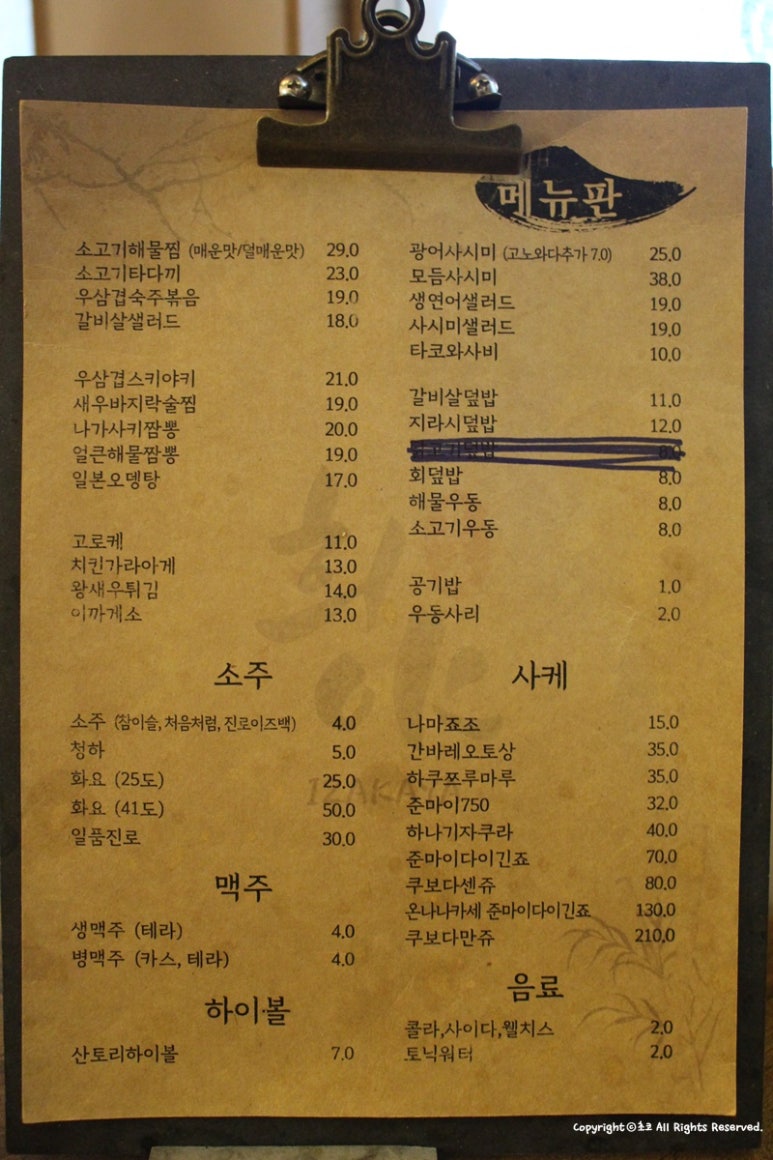 메뉴판
소고기해물찜 (매운맛/덜매운맛) 29.0
소고기타다끼 23.0
우삼겹숙주볶음 19.0
갈비살샐러드 18.0
우삼겹스키야키 21.0
새우바지락술찜 19.0
나가사키짬뽕 20.0
얼큰해물짬뽕 19.0
일본오뎅탕 17.0
고로케 11.0
치킨가라아게 13.0
왕새우튀김 14.0
이까게소 13.0
소주
소주 (참이슬, 처음처럼, 진로이즈백) 4.0
청하 5.0
화요 (25도) 25.0
화요 (41도) 50.0
일품진로 30.0
맥주
생맥주 (테라) 4.0
병맥주 (카스, 테라) 4.0
하이볼
산토리하이볼 7.0
광어사시미 (고노와다추가 7.0) 25.0
모듬사시미 38.0
생연어샐러드 19.0
사시미샐러드 19.0
타코와사비 10.0
갈비살덮밥 11.0
지라시덮밥 12.0
8.0
회덮밥 8.0
해물우동 8.0
소고기우동 8.0
공기밥 1.0
우동사리 2.0
사케
나마죠조 15.0
간바레오토상 35.0
하쿠쯔루마루 35.0
준마이750 32.0
하나기자쿠라 40.0
준마이다이긴죠 70.0
쿠보다센쥬 80.0
온나나카세 준마이다이긴죠 130.0
쿠보다만쥬 210.0
음료
콜라,사이다,웰치스 2.0
토닉워터 2.0
Copyright ⓒ초코 All Rights Reserved.